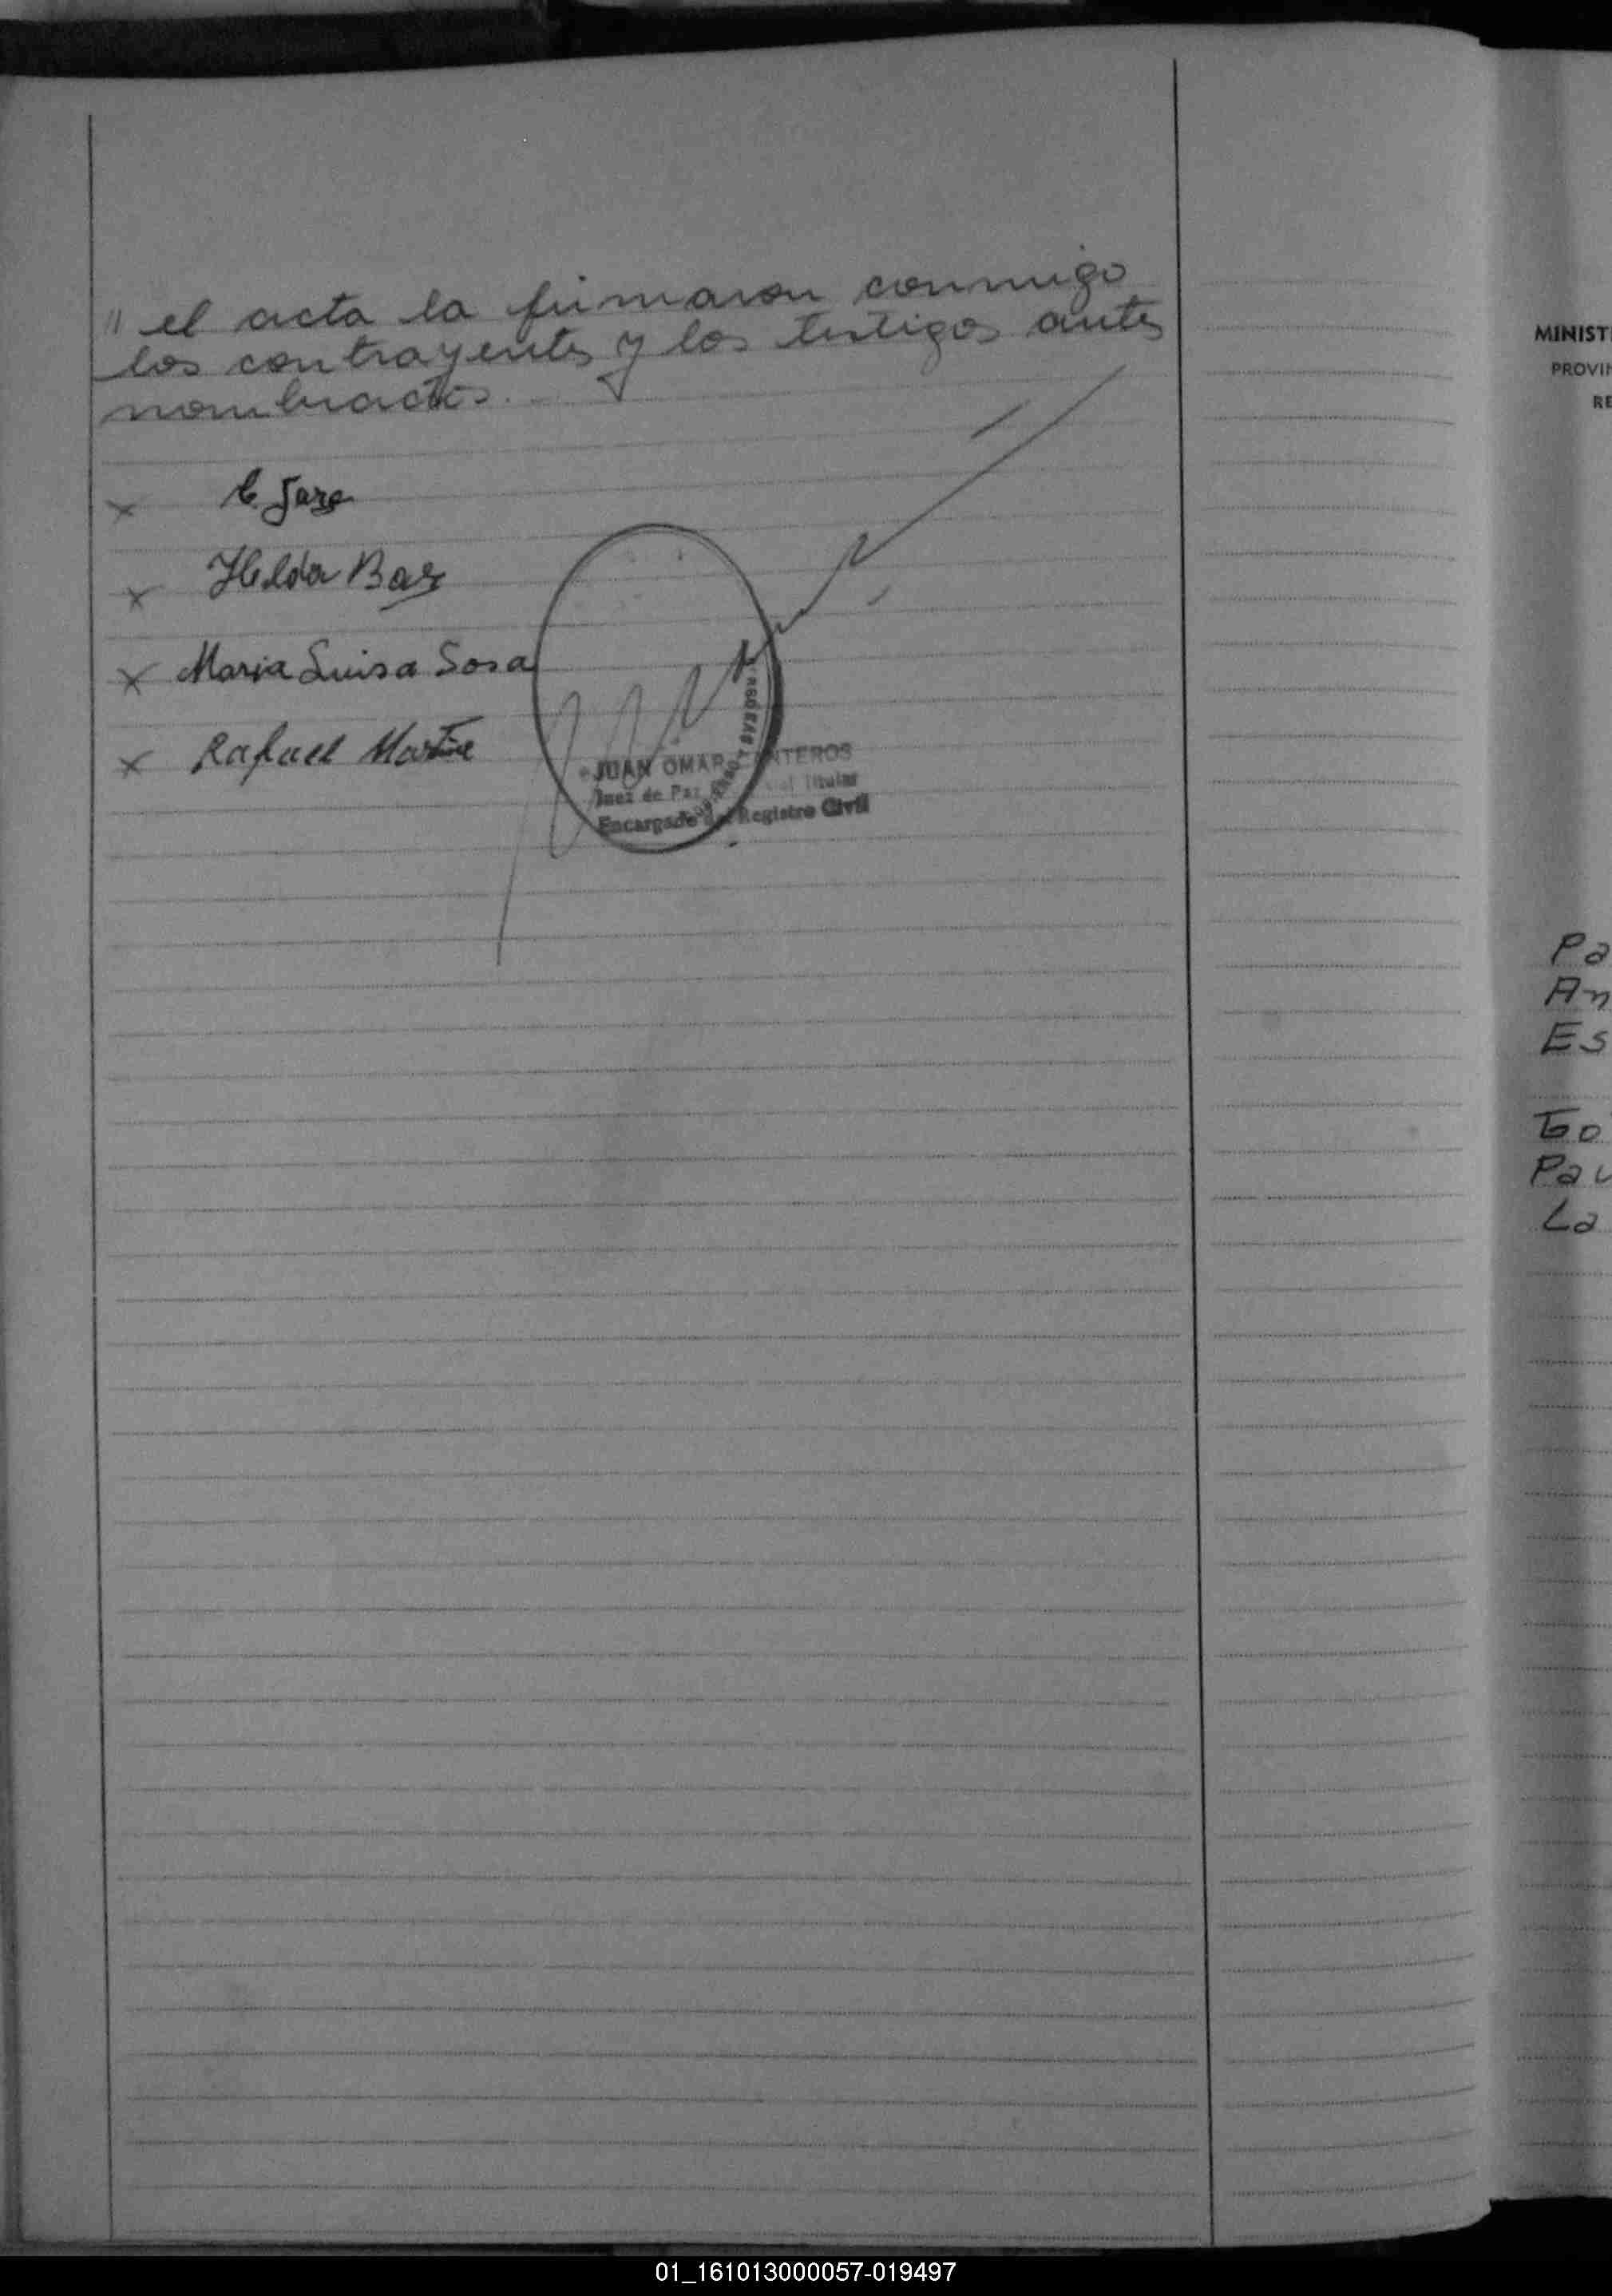 " el acta la firmaron conmigo
los contrayentes y los testigos antes
nombrados.
x
x Hilda Baz
x Maria Luisa Sosa
x Rafael Martine
JUAN OMAR
Juez de Paz Titular
Encargado del Registro Civil
MINIST
PROVIN
RE
Pa
An
Es
Go
Pau
La
01_161013000057-019497